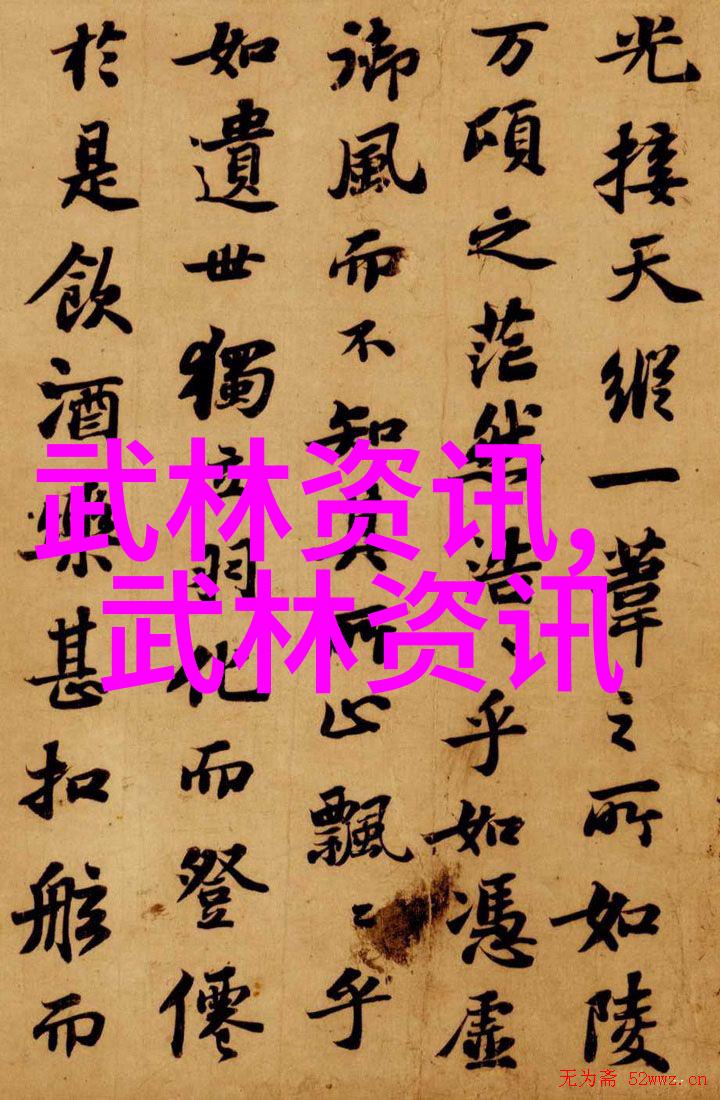 光接天縱一葦之所如陵
万頃之茫然浩〻乎如憑虛
御風而不知其所止飄〻乎
如遺世獨立羽化而登僊
於是飲酒樂甚扣舷而
武林资讯,
武林资讯
无为斋 52wwz.cn